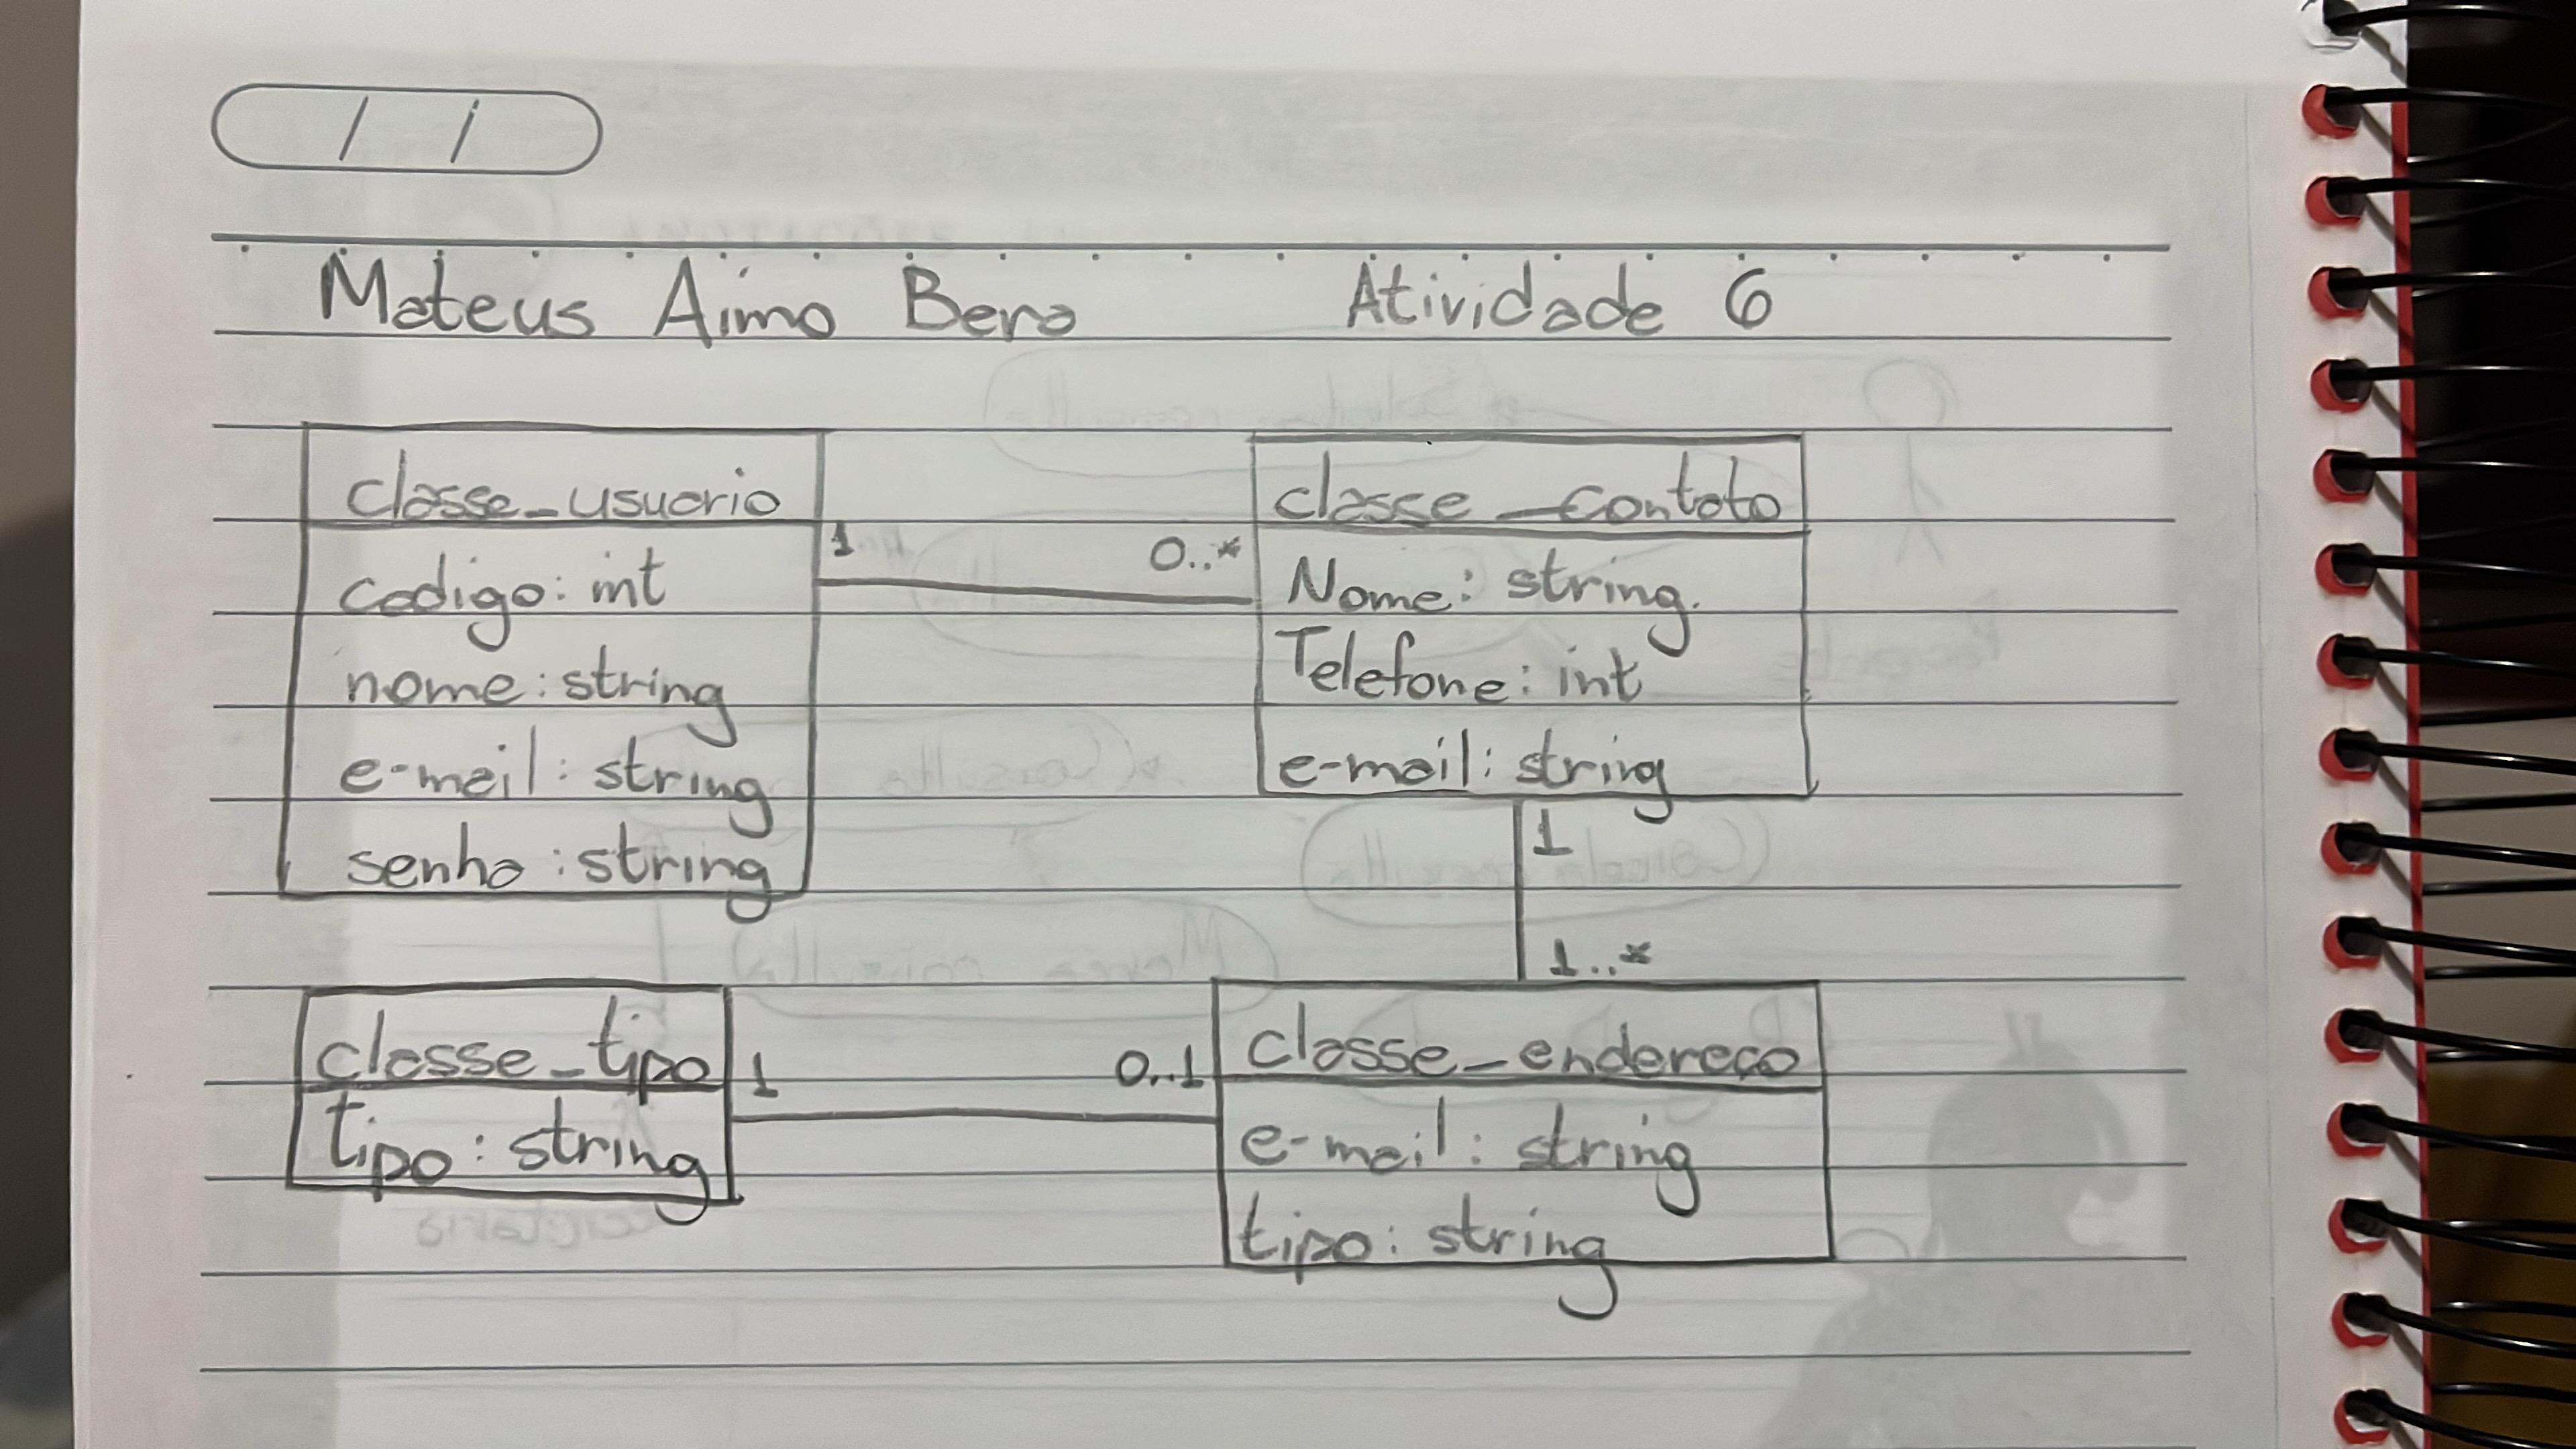 / /
Mateus Aimo Bera Atividade 6
classe_usuario
codigo: int
nome: string
e-mail: string
senha: string
1 0..*
classe_contato
Nome: string.
Telefone: int
e-mail: string
1
1..*
classe_tipo
tipo: string
1 0..1
classe_endereço
e-mail: string
tipo: string